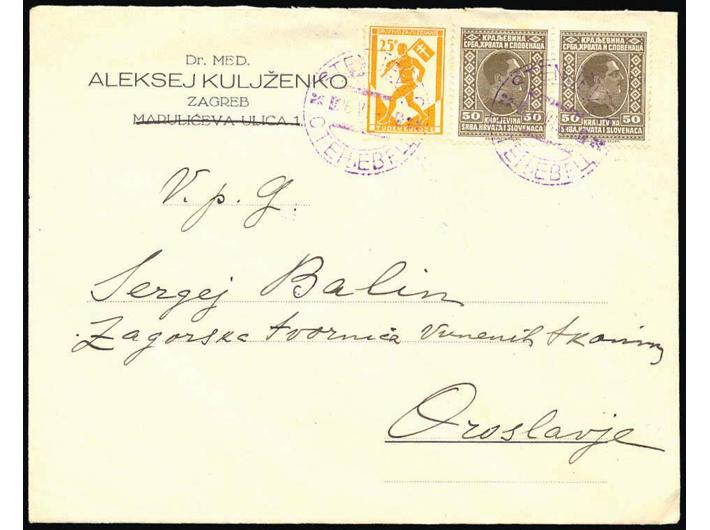 Dr. MED.
ALEKSEJ KULJŽENKO
ZAGREB
MARULIĆEVA ULICA 1
25
КРАЉЕВИНА
СРБА, ХРВАТА И СЛОВЕНАЦА
50 50
KRALJEVINA
SRBA, HRVATA I SLOVENACA
КРАЉЕВИНА
СРБА, ХРВАТА И СЛОВЕНАЦА
50 50
KRALJEVINA
SRBA, HRVATA I SLOVENACA
СТЕЊЕВЕЦ
СТЕЊЕВЕЦ
V. p. G.
Sergej Balin
Zagorska tvornica Vunenih tkanina
Oroslavje